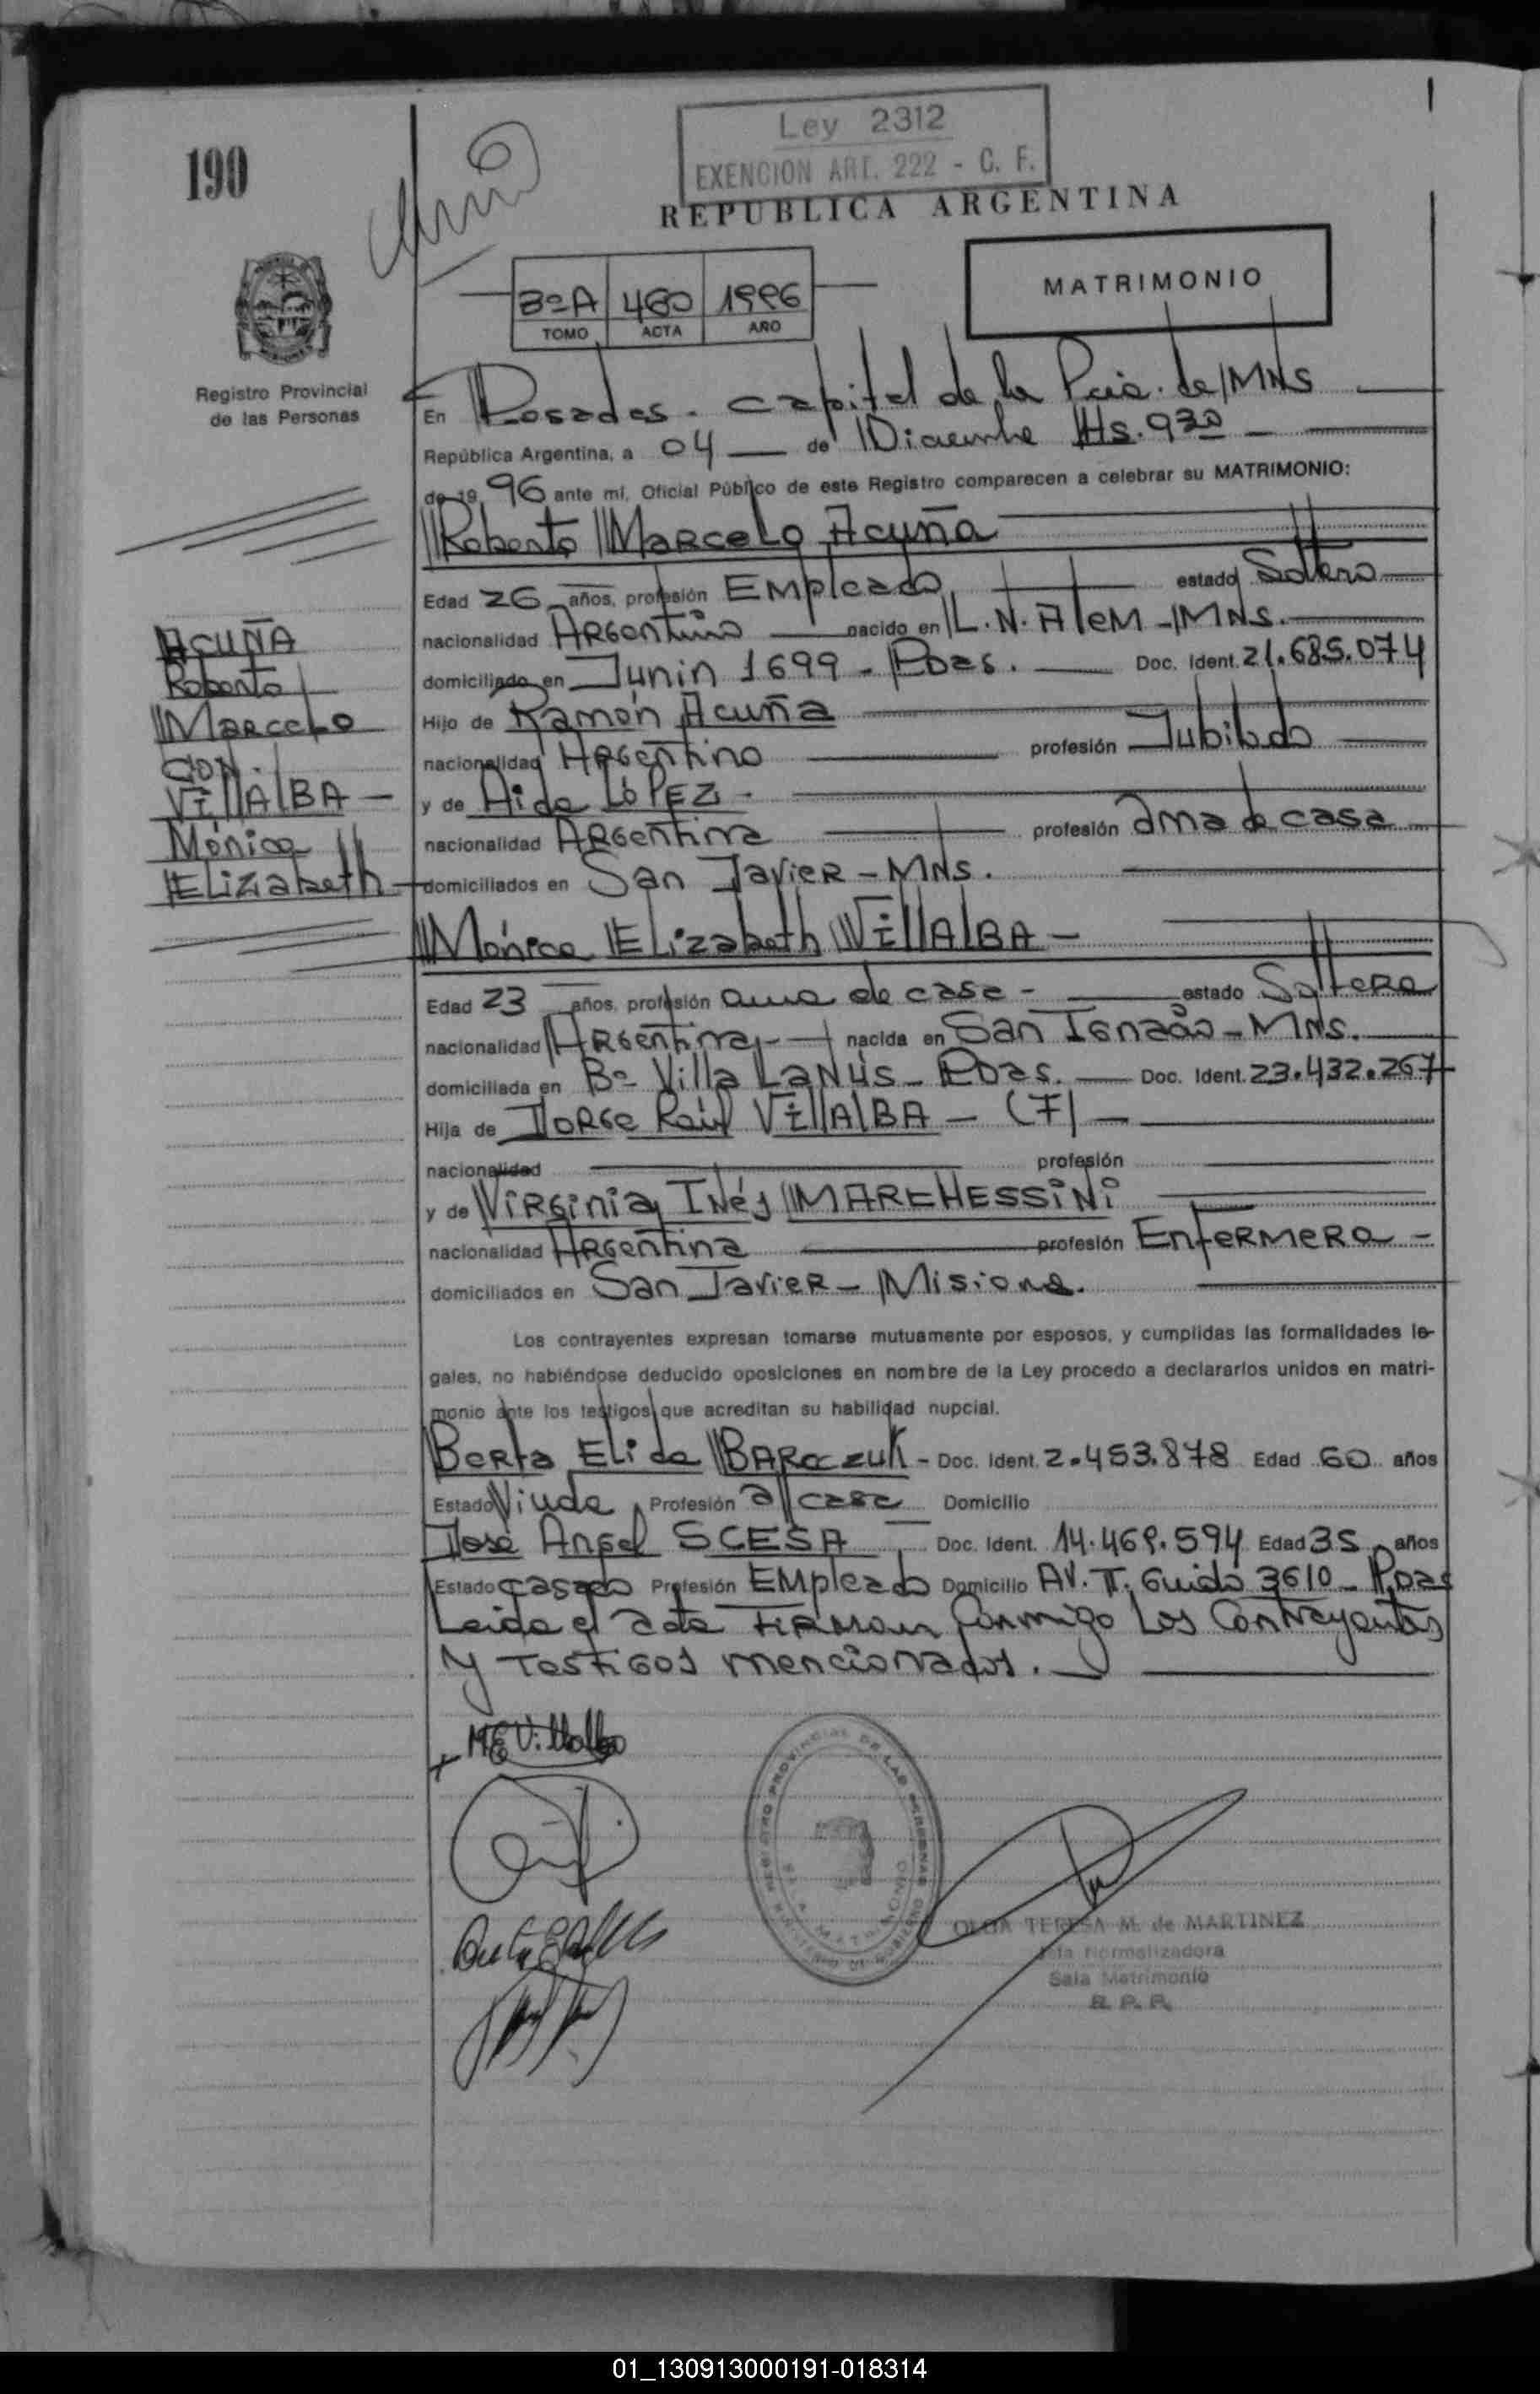 190
Ley 2312
EXENCION ART. 222 - C. F.
REPUBLICA ARGENTINA
3º A 460 1996
TOMO ACTA AÑO
MATRIMONIO
Registro Provincial
de las Personas
En Posadas - capital de la Pcia. de MNS
República Argentina, a 04 de Diciembre Hs. 930
de 19 96 ante mí, Oficial Público de este Registro comparecen a celebrar su MATRIMONIO:
Roberto Marcelo Acuña
Edad 26 años, profesión Empleado estado Soltero
nacionalidad Argentino nacido en L. N. Alem - MNS.
domiciliado en Junin 1699 - Pdas. Doc. Ident. 21.685.074
Hijo de Ramón Acuña
nacionalidad Argentino profesión Jubilado
y de Aida LóPEZ -
nacionalidad Argentina profesión ama de casa
domiciliados en San Javier - MNS.
ACUÑA
Roberto
Marcelo
CON.
VillAlBA -
Mónica
Elizabeth
Mónica Elizabeth VillAlBA -
Edad 23 años, profesión ama de casa - estado Soltera
nacionalidad Argentina - nacida en San Ignacio - MNS.
domiciliada en Bº Villa Lanús - Pdas. Doc. Ident. 23.432.267
Hija de Jorge Raúl VillAlBA - (F) -
nacionalidad profesión
y de Virginia Inés MARCHESSiNi
nacionalidad Argentina profesión Enfermera -
domiciliados en San Javier - Misiones.
Los contrayentes expresan tomarse mutuamente por esposos, y cumplidas las formalidades le-
gales, no habiéndose deducido oposiciones en nombre de la Ley procedo a declararlos unidos en matri-
monio ante los testigos que acreditan su habilidad nupcial.
Berta Elida - Doc. Ident. 2.453.878 Edad 60 años
Estado Viuda Profesión a/casa Domicilio
José Angel SCESA Doc. Ident. 14.469.594 Edad 35 años
Estado casado Profesión Empleado Domicilio AV. T. Guido 3610 - Pdas
Leida el acta Firman conmigo Los Contrayentes
y Testigos mencionados.
ME Villalba
REGISTRO PROVINCIAL DE LAS PERSONAS
MINISTERIO DE GOBIERNO
SALA MATRIMONIO
OLGA TERESA M. de MARTINEZ
Jefa Normalizadora
Sala Matrimonio
R. P. P.
01_130913000191-018314